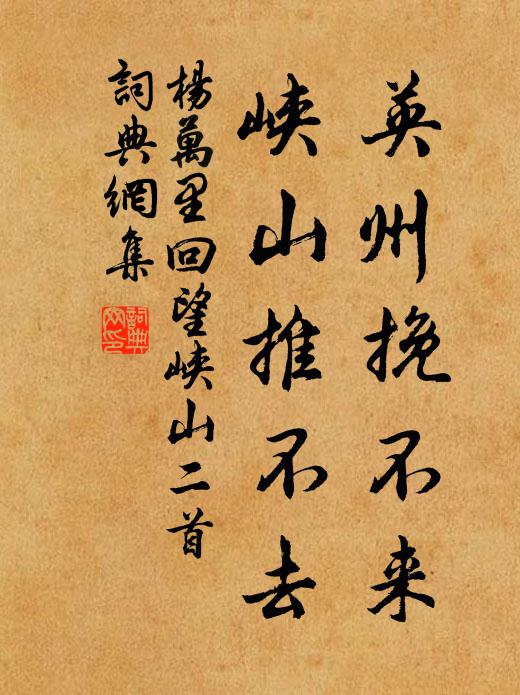 英州挽不来
峡山推不去
楊萬里回望峡山二首
詞典網集
詞典網印